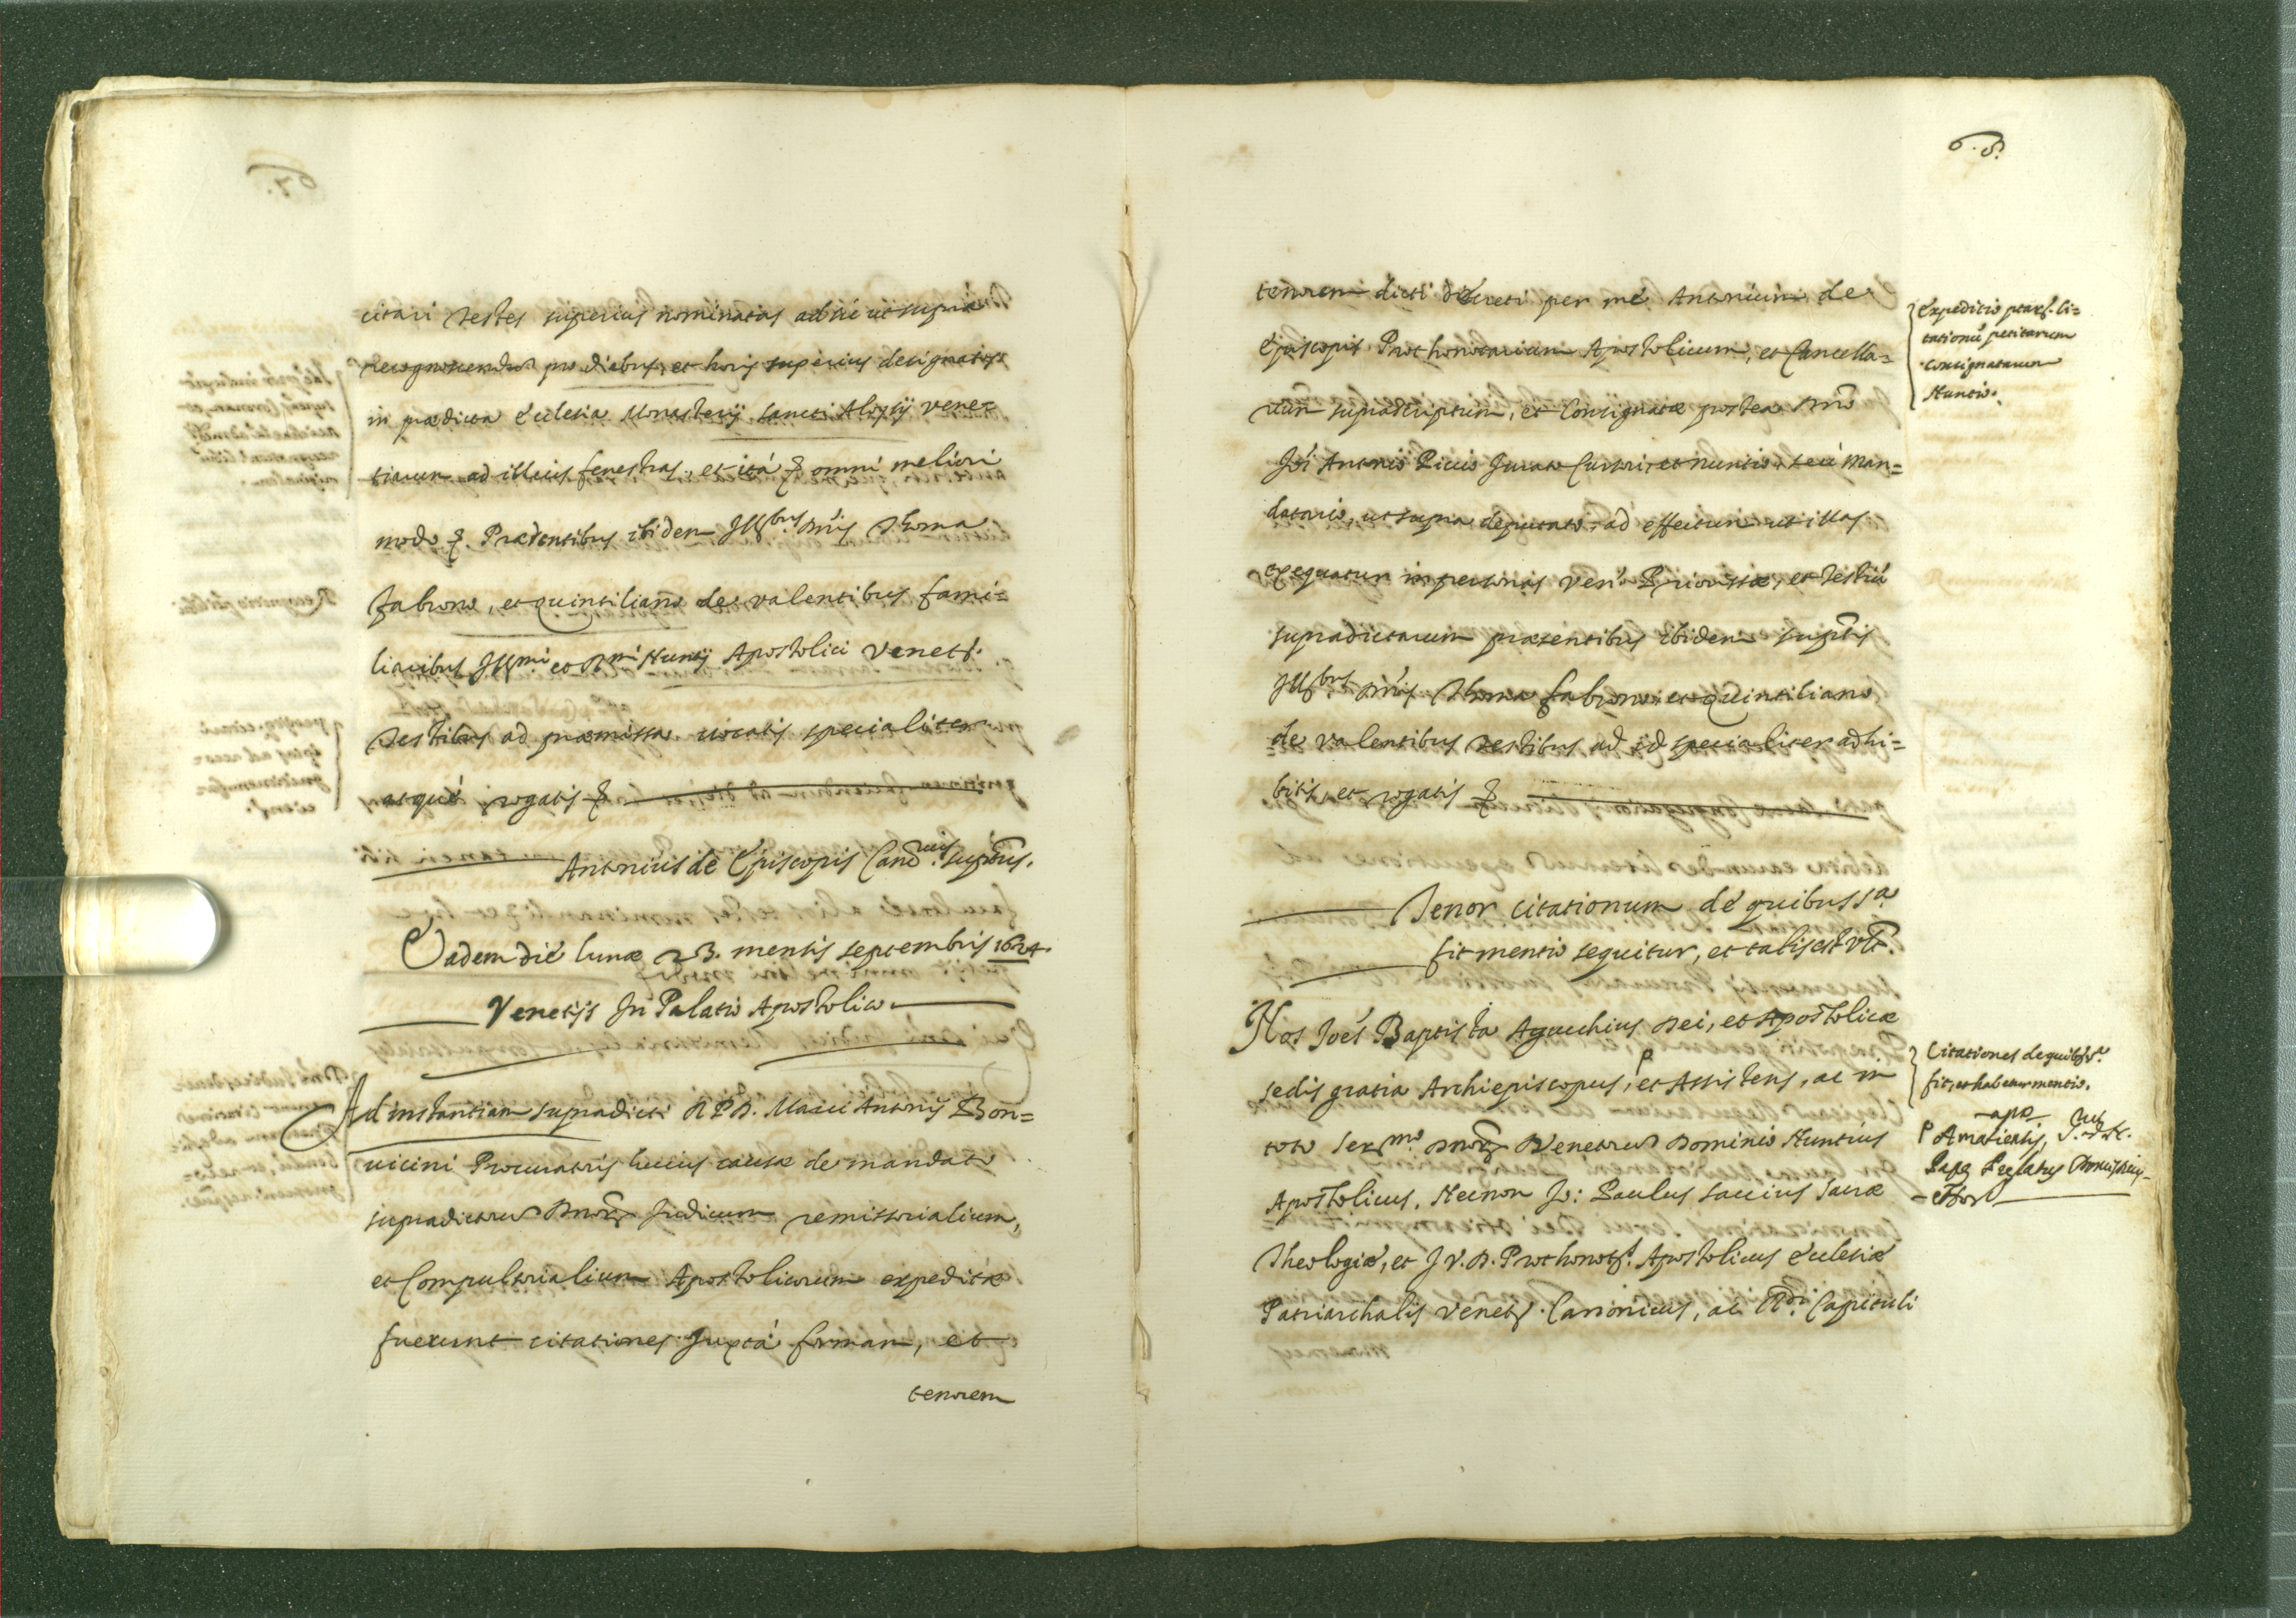 citari testes superius nominatas ad sic ut supra
recognoscendum pro diebus, et horis superius designatis
in prædicta Ecclesia Monasterij Sancti Aloysij Vene=
tiarum ad illius fenestras, et ità & omni meliori
modo &. Præsentibus ibidem Ill.bus DD. Thoma
Fabrono, et Quintiliano de Valentibus fami=
liaribus Ill.mi et R.mi Nuntij Apostolici Venet.
Testibus ad præmissa vocatis specialiter
atque rogatis &
Antonius de Episcopis Canc.rius supr.us.
Eadem die lunæ 23. mensis septembris 1624.
Venetijs In Palatio Apostolico
Ad instantiam supradicti R.P.D. Marci Antonij Bon=
uicini Procuratoris huius causæ de mandato
supradictorum Dnorum Judicum remissorialium,
et Compulsorialium Apostolicorum expeditæ
fuerunt citationes juxtà formam, et
tenorem
68.
tenorem dicti decreti per me Antonium de
Episcopis Prothonotarium Apostolicum, et Cancella=
rium suprascriptum, et Consignatæ postea Dno
Joi Antonio Picio Jurato Cursori, et nuntio, seù Man=
datario, ut supra deputato, ad effectum ut illas
exequatur in personas Ven. Priorissæ, et Testiū
supradictarum præsentibus ibidem suptis
Ill.bus DD. Thoma Fabrono, et Quintiliano
de Valentibus Testibus ad id specialiter adhi=
bitis, et rogatis &
Tenor citationum de quibus s.a
fit mentio sequitur, et talis est vt.
Nos Joes Baptista Agucchius Dei, et Apostolicæ
sedis gratia Archiepiscopus, P et Assistens, ac in
toto Ser.mo Dnorum Venetorum Dominio Nuntius
Apostolicus, Necnon Jo: Paulus Saccius Sacræ
Theologiæ, et J.V.D. Prothonot. Apostolicus Ecclesiæ
Patriarchalis Venet. Canonicus, ac R.di Capituli
Expeditio præs. ci=
tationū petitarum
consignatarum
Nuntio.
Citationes de quibus s.a
fit, et habetur mentio.
P Amasiensis, S.mi D.N.
Papæ Prælatus Domesticus